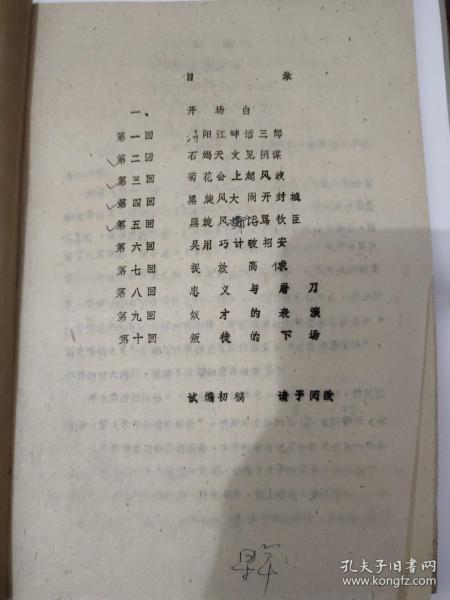 目 录
一、 开场白
第一回 浔阳江畔话三郎
第二回 石碣天文见阴谋
第三回 菊花会上起风波
第四回 黑旋风大闹开封城
第五回 黑旋风 诏骂钦臣
第六回 吴用巧计破招安
第七回 捉放高俅
第八回 忠义与屠刀
第九回 奴才的表演
第十回 叛徒的下场
试编初稿 请予阅改
孔夫子旧书网
www.kongfz.com